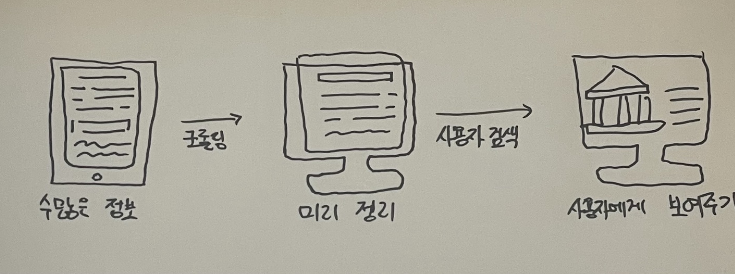 수많은 정보
크롤링
미리 정리
사용자 검색
사용자에게 보여주기